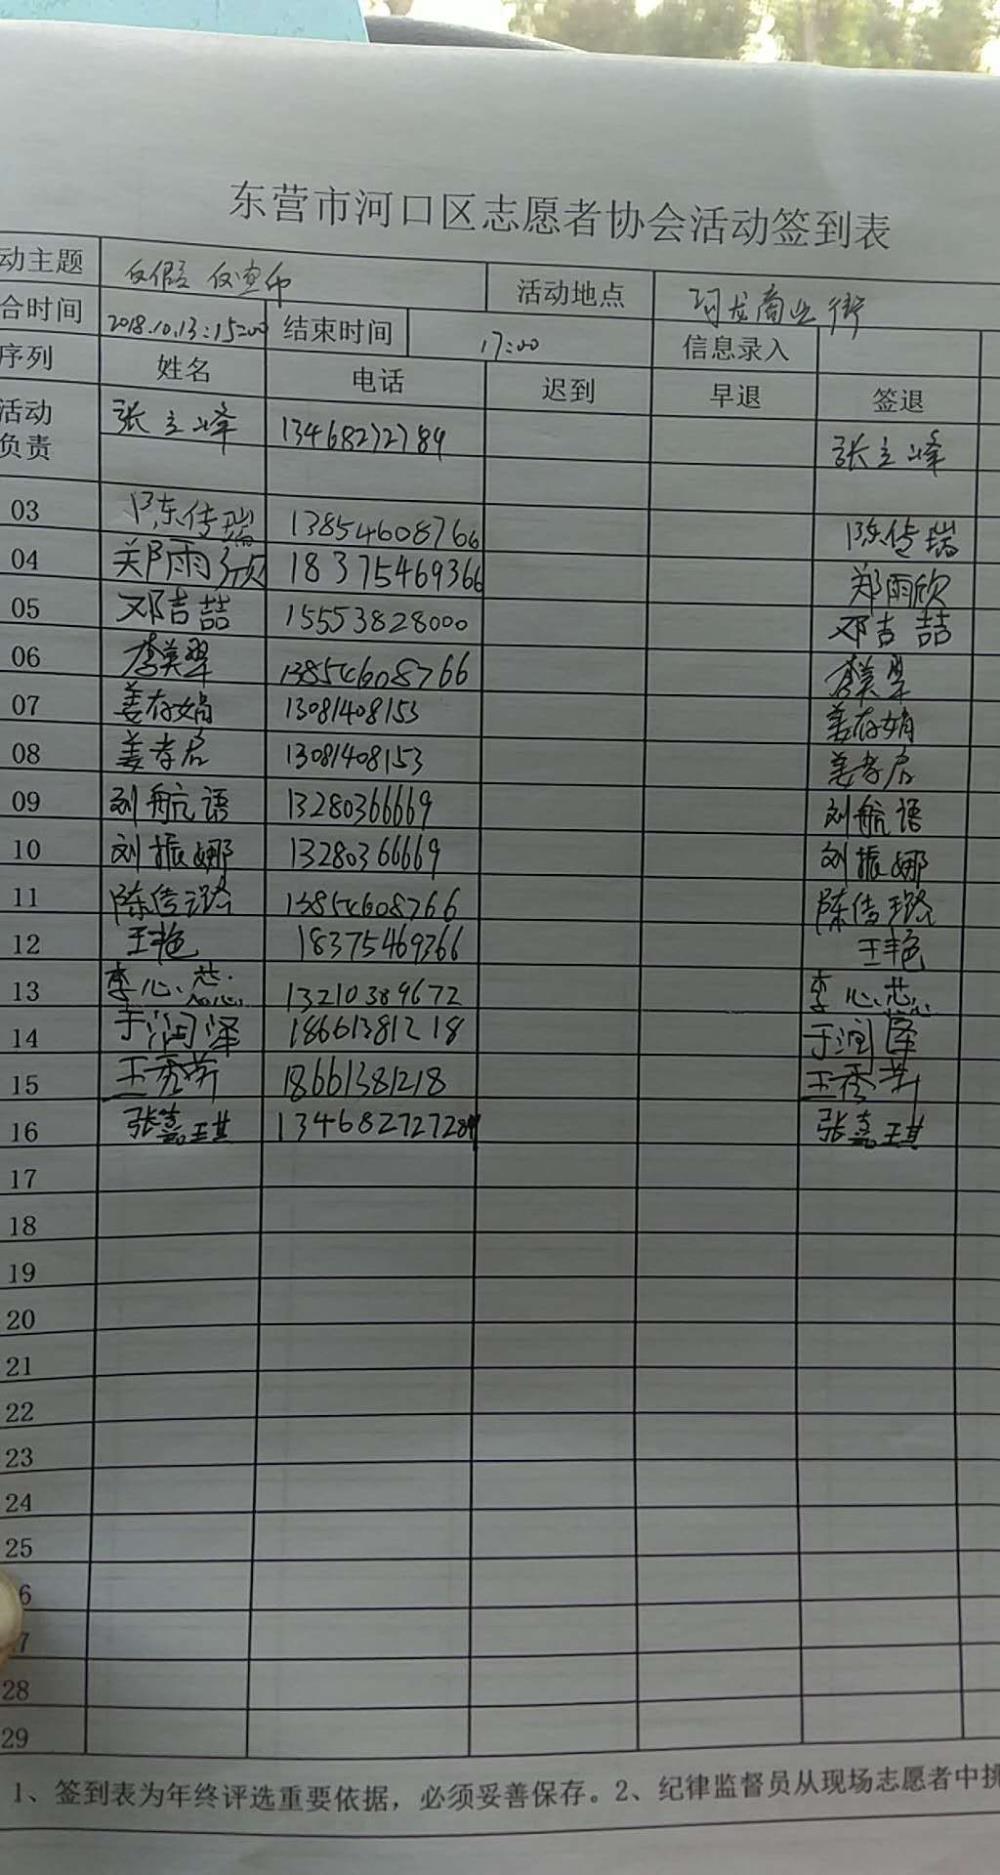 东营市河口区志愿者协会活动签到表
动主题 反假 活动地点 河龙商业街
合时间 2018.10.13:15:00 结束时间 17:00 信息录入
序列 姓名 电话 迟到 早退 签退
活动负责 张立峰 13468272789 张立峰
03 陈传瑞 13854608766 陈传瑞
04 郑雨欣 18375469366 郑雨欣
05 邓吉喆 15553828000 邓吉喆
06 李美翠 13854608766 李美翠
07 姜存娟 13081408153 姜存娟
08 姜孝启 13081408153 姜孝启
09 刘航语 13280366669 刘航语
10 刘振娜 13280366669 刘振娜
11 陈传璐 13854608766 陈传璐
12 王艳 18375469366 王艳
13 李心蕊 13210389672 李心蕊
14 于润泽 18661381218 于润泽
15 王秀芳 18661381218 王秀芳
16 张嘉琪 134682727289 张嘉琪
17
18
19
20
21
22
23
24
25
6
7
28
29
1、签到表为年终评选重要依据，必须妥善保存。2、纪律监督员从现场志愿者中挑